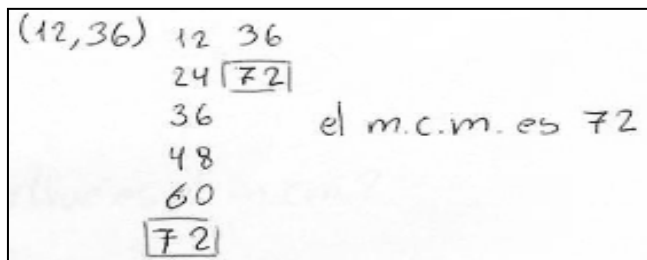 (12,36) 12 36
24 72
36
el m.c.m. es 72
48
60
72